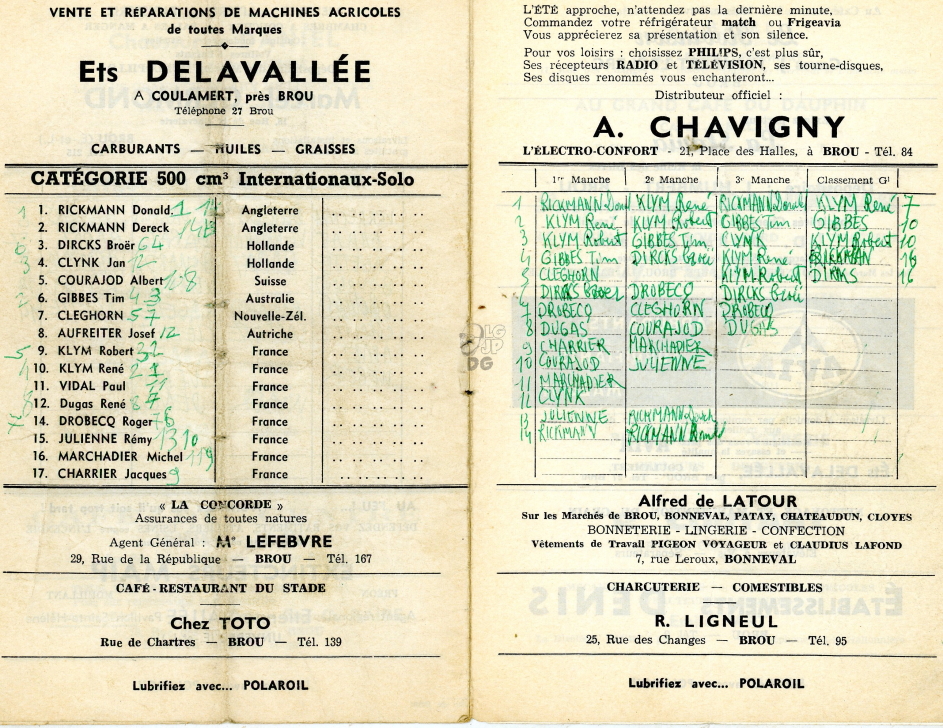 VENTE ET RÉPARATIONS DE MACHINES AGRICOLES
de toutes Marques
Ets DELAVALLÉE
A COULAMERT, près BROU
Téléphone 27 Brou
CARBURANTS — HUILES — GRAISSES
CATÉGORIE 500 cm³ Internationaux-Solo
1 1. RICKMANN Donald. Angleterre
2. RICKMANN Dereck Angleterre
3. DIRCKS Broër 64 Hollande
3 4. CLYNK Jan 12 Hollande
5. COURAJOD Albert Suisse
2 6. GIBBES Tim 43 Australie
7. CLEGHORN 57 Nouvelle-Zél.
8. AUFREITER Josef 12 Autriche
5 9. KLYM Robert 32 France
4 10. KLYM René 21 France
11. VIDAL Paul 77 France
8 12. Dugas René 87 France
7 14. DROBECQ Roger 78 France
15. JULIENNE Rémy France
16. MARCHADIER Michel 119 France
17. CHARRIER Jacques 9 France
« LA CONCORDE »
Assurances de toutes natures
Agent Général : Mᵉ LEFEBVRE
29, Rue de la République — BROU — Tél. 167
CAFÉ-RESTAURANT DU STADE
Chez TOTO
Rue de Chartres — BROU — Tél. 139
Lubrifiez avec... POLAROIL
L'ÉTÉ approche, n'attendez pas la dernière minute,
Commandez votre réfrigérateur match ou Frigeavia
Vous apprécierez sa présentation et son silence.
Pour vos loisirs : choisissez PHILIPS, c'est plus sûr,
Ses récepteurs RADIO et TÉLÉVISION, ses tourne-disques,
Ses disques renommés vous enchanteront...
Distributeur officiel :
A. CHAVIGNY
L'ÉLECTRO-CONFORT - 21, Place des Halles, à BROU - Tél. 84
1ʳᵉ Manche 2ᵉ Manche 3ᵉ Manche Classement Gˡ
1 RICKMANN Donald KLYM René RICKMANN Donald KLYM René 7
2 KLYM René KLYM Robert GIBBES Tim GIBBES 10
3 KLYM Robert GIBBES Tim CLYNK KLYM Robert 10
4 GIBBES Tim DIRCKS Broër KLYM René RICKMAN 16
5 CLEGHORN KLYM Robert DIRKS 16
6 DIRCKS Broer DROBECQ DIRCKS Broër
7 DROBECQ CLEGHORN DROBECQ
8 DUGAS COURAJOD DUGAS
9 CHARRIER MARCHADIER
10 COURAJOD JULIENNE
11 MARCHADIER
12 CLYNK
13 JULIENNE RICKMANN Dereck
14 RICKMANN RICKMANN Donald
Alfred de LATOUR
Sur les Marchés de BROU, BONNEVAL, PATAY, CHATEAUDUN, CLOYES
BONNETERIE - LINGERIE - CONFECTION
Vêtements de Travail PIGEON VOYAGEUR et CLAUDIUS LAFOND
7, rue Leroux, BONNEVAL
CHARCUTERIE — COMESTIBLES
R. LIGNEUL
25, Rue des Changes — BROU — Tél. 95
Lubrifiez avec... POLAROIL